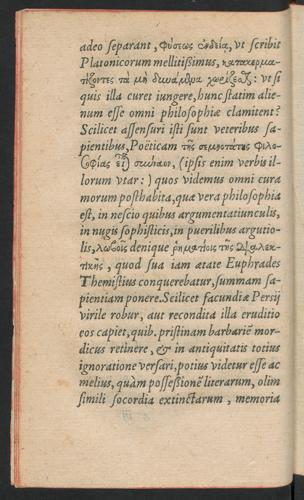 adeo separant, φύσεως ἐνδεία, vt scribit
Platonicorum mellitißimus, κατακερμα-
τίζοντες τὰ μὴ δυνάμενα χωρίζεσθ: vt si
quis illa curet iungere, hunc statim alie-
num esse omni philosophiæ clamitent?
Scilicet assensuri isti sunt veteribus sa-
pientibus, Poëticam τῆς σεμνοτάτης φιλο-
σοφίας εἶ), (ipsis enim verbis il-
lorum vtar:) quos videmus omni cura
morum posthabita, quæ vera philosophia
est, in nescio quibus argumentatiunculis,
in nugis sophisticis, in puerilibus argutio-
lis, denique ῥηματίοις τῆς διαλεκ-
τικῆς, quod sua iam ætate Euphrades
Themistius conquerebatur, summam sa-
pientiam ponere. Scilicet facundiæ Persij
virile robur, aut recondita illa eruditio
eos capiet, quib. pristinam barbariē mor-
dicus retinere, & in antiquitatis totius
ignoratione versari, potius videtur esse ac
melius, quàm possessionē literarum, olim
simili socordia extinctarum, memoria